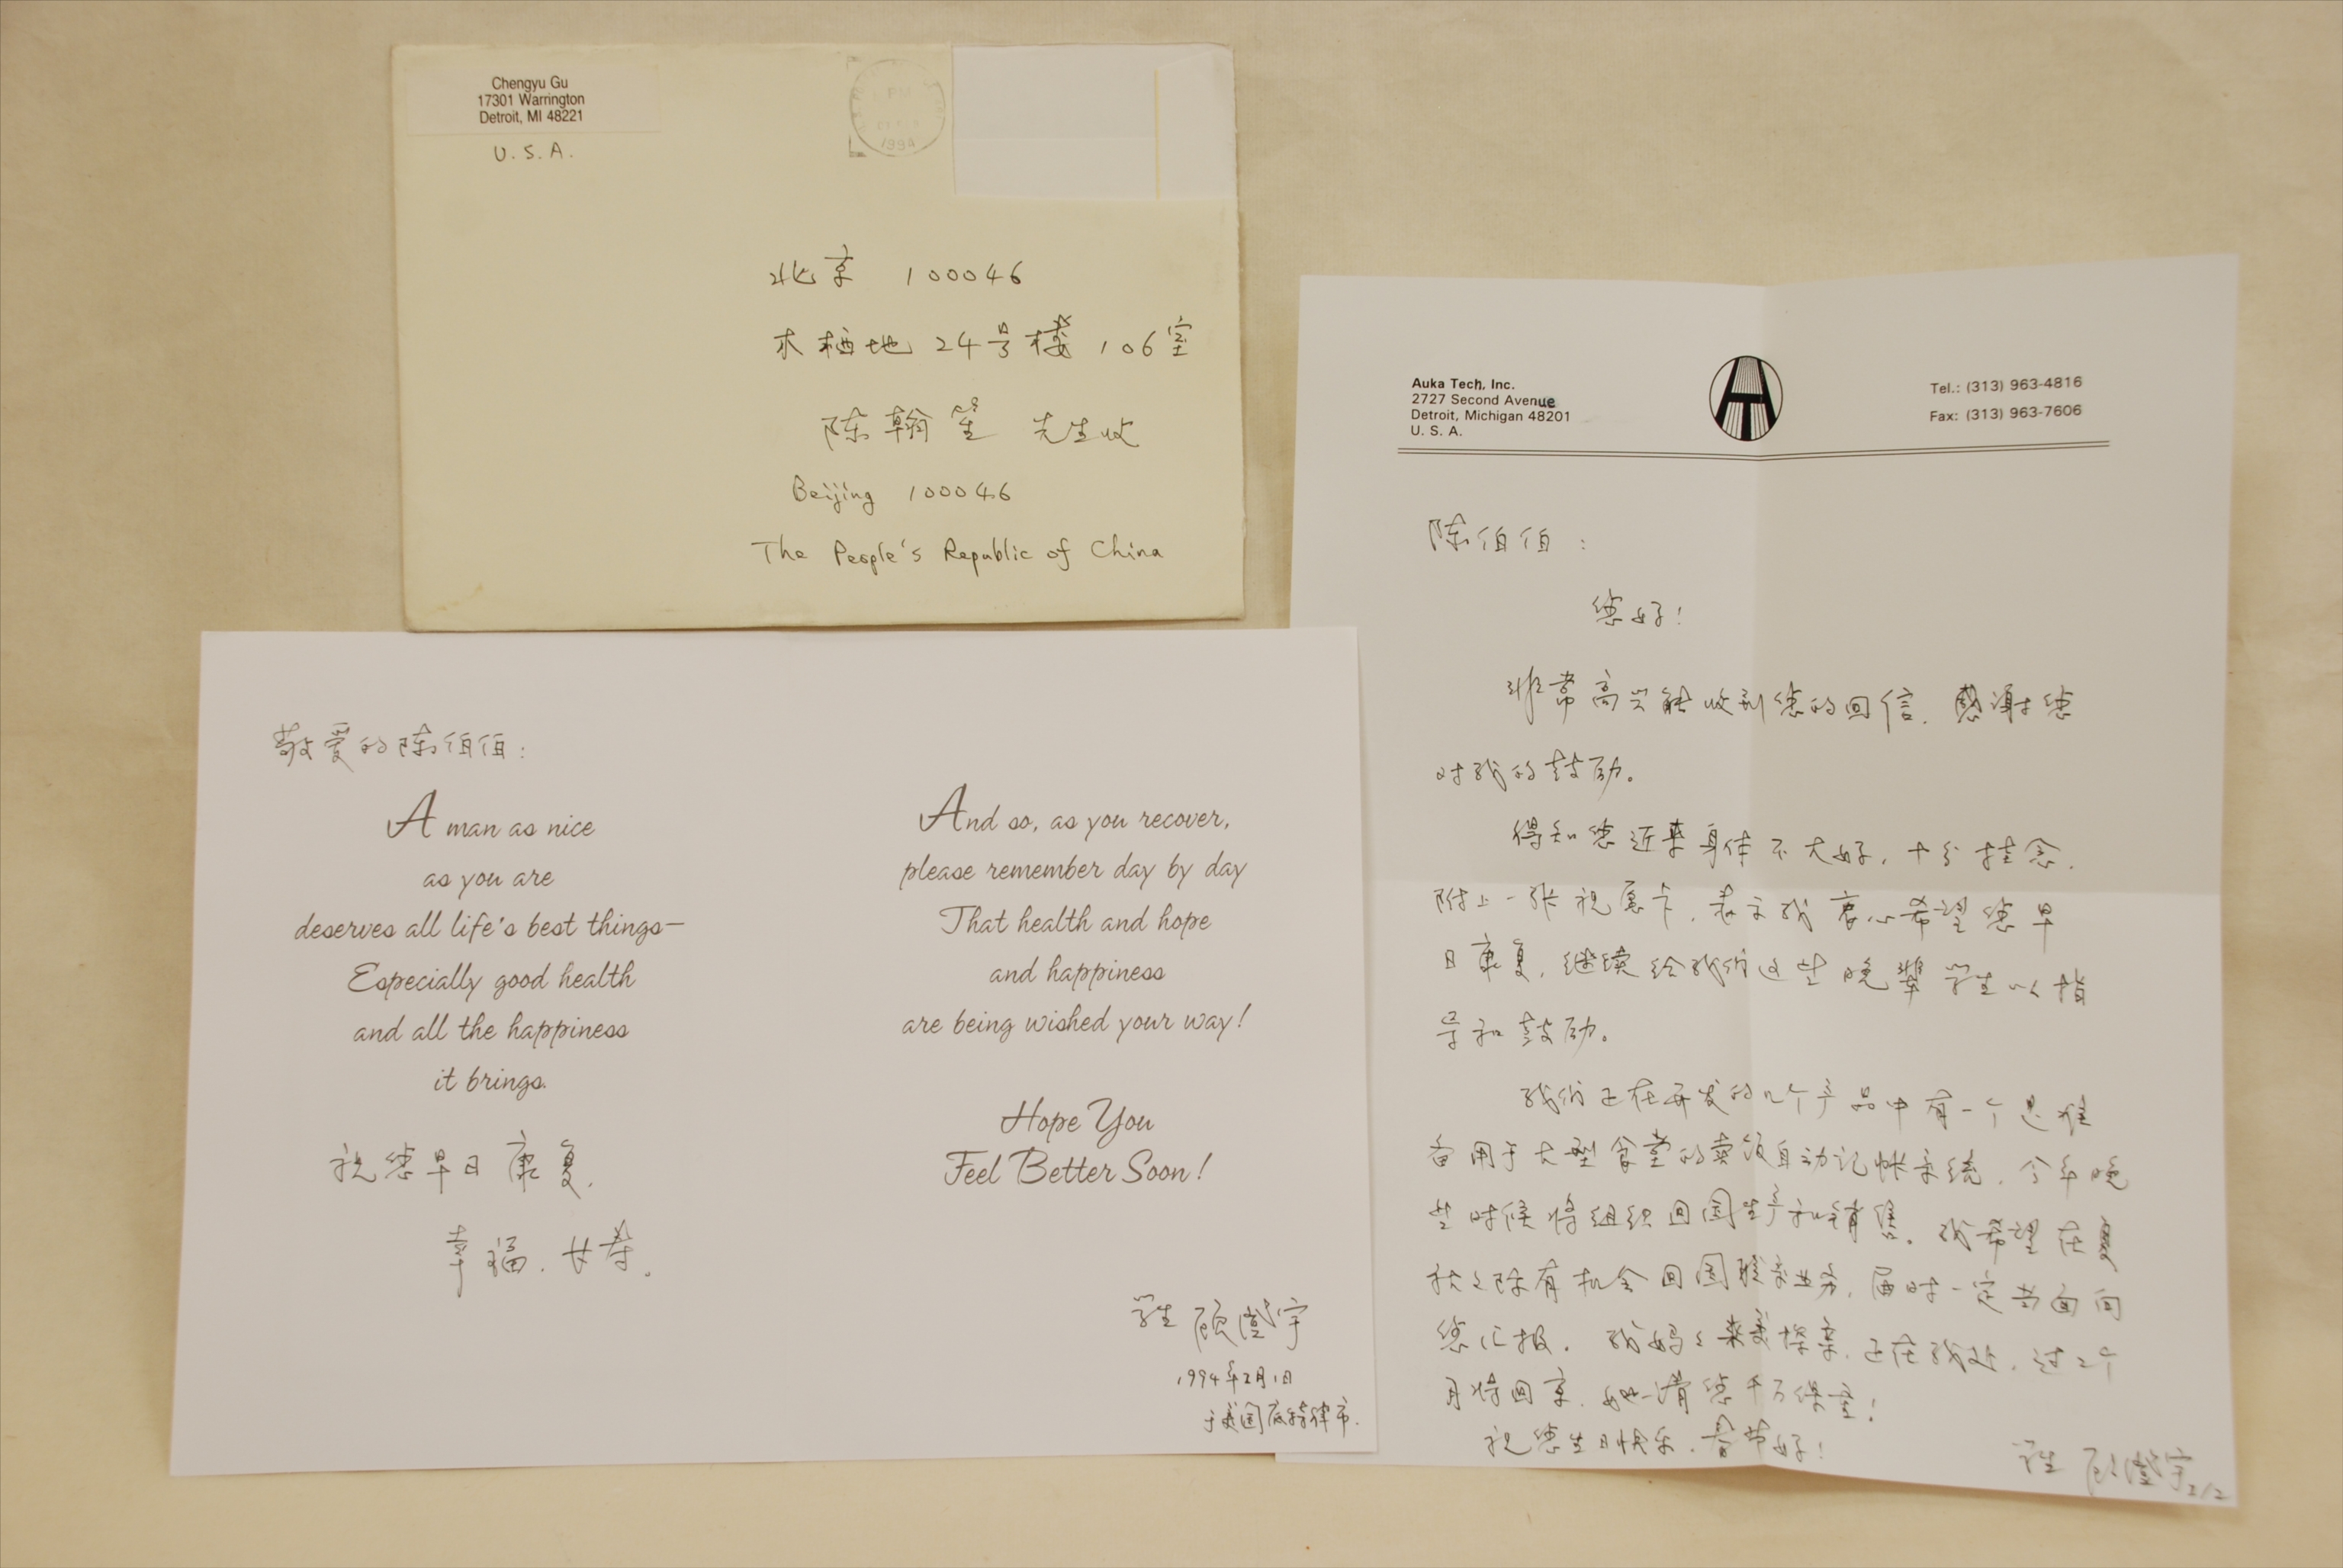 Chengyu Gu
17301 Warrington
Detroit, MI 48221
U.S.A.
1994
北京 100046
木樨地24号楼106室
陈翰笙 先生收
Beijing 100046
The People's Republic of China
敬爱的陈伯伯:
A man as nice
as you are
deserves all life's best things—
Especially good health
and all the happiness
it brings.
祝您早日康复.
幸福.长寿。
And so, as you recover,
please remember day by day
That health and hope
and happiness
are being wished your way!
Hope You
Feel Better Soon!
学生 顾澄宇
1994年2月1日
于美国底特律市.
Auka Tech, Inc.
2727 Second Avenue
Detroit, Michigan 48201
U. S. A.
Tel.: (313) 963-4816
Fax: (313) 963-7606
陈伯伯:
您好!
非常高兴能收到您的回信.感谢您
对我的鼓励。
得知您近来身体不大好,十分挂念.
附上一张祝愿卡,表示我衷心希望您早
日康复,继续给我们这些晚辈学生以指
导和鼓励。
我们正在开发的几个产品中有一个是准
备用于大型食堂的卖饭自动记帐系统,今年晚
些时候将组织回国生产和销售。我希望在夏
秋之际有机会回国联系业务,届时一定当面向
您汇报. 我妈妈来美探亲,正在我处,过2个
月将回京.她请您千万保重!
祝您生日快乐.春节好!
学生 顾澄宇 2/2